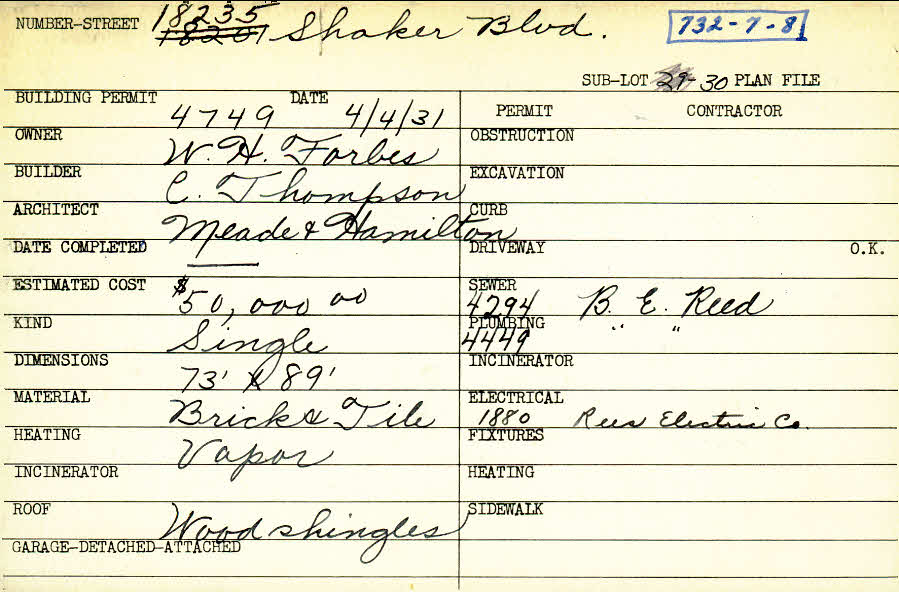 18235
NUMBER-STREET 18201 Shaker Blvd. 732-7-8
SUB-LOT 29-30 PLAN FILE
BUILDING PERMIT 4749 DATE 4/4/31
PERMIT CONTRACTOR
OWNER W. H. Forbes
OBSTRUCTION
BUILDER C. Thompson
EXCAVATION
ARCHITECT Meade & Hamilton
CURB
DATE COMPLETED
DRIVEWAY O.K.
ESTIMATED COST $50,000 00
SEWER 4294 B. E. Reed
KIND Single
PLUMBING 4449 " "
DIMENSIONS 73' X 89'
INCINERATOR
MATERIAL Brick & Tile
ELECTRICAL 1880 Rees Electric Co.
HEATING Vapor
FIXTURES
INCINERATOR
HEATING
ROOF Wood shingles
SIDEWALK
GARAGE-DETACHED-ATTACHED